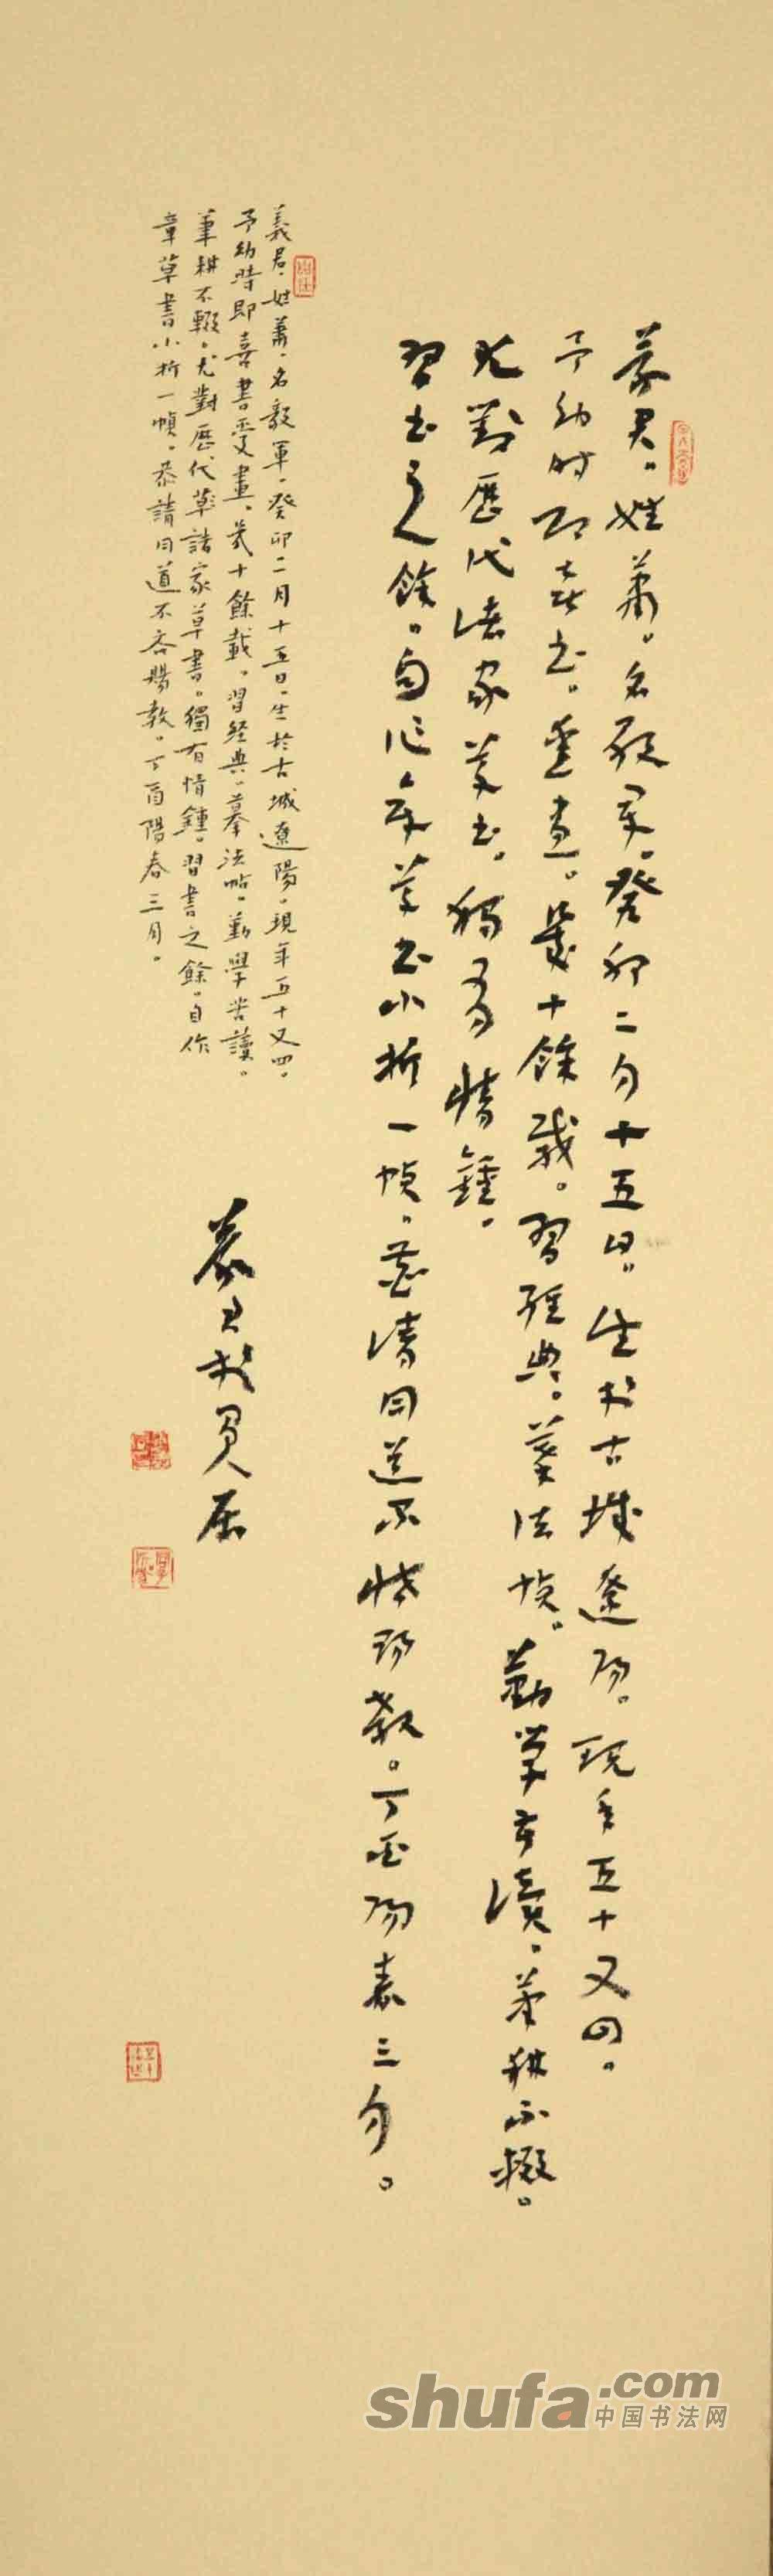 義君。姓蕭。名毅軍。癸卯二月十五日。生於古城遼陽。現年五十又四。
予幼時即喜書。愛畫。幾十餘載。習經典。摹法帖。勤學苦讀。筆耕不輟。
尤對歷代諸家草書。獨有情鍾。
習書之餘。自作章草書小折一幀。恭請同道不吝賜教。丁酉陽春三月。
義君。姓蕭。名毅軍。癸卯二月十五日。生於古城遼陽。現年五十又四。
予幼時即喜書愛畫。幾十餘載。習經典。摹法帖。勤學苦讀。
筆耕不輟。尤對歷代草諸家草書。獨有情鍾。習書之餘。自作
章草書小折一幀。恭請同道不吝賜教。丁酉陽春三月。
義君於
shufa.com
中国书法网